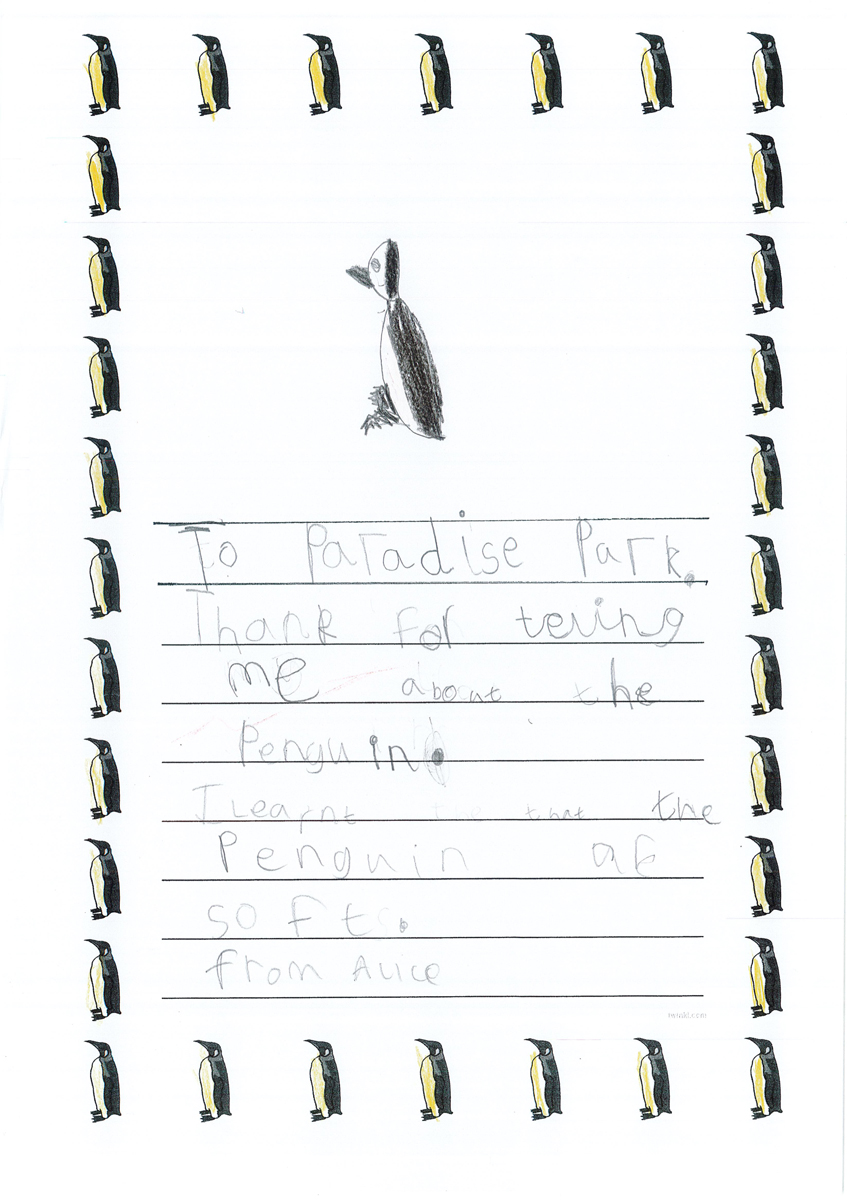 To Paradise Park.
Thank for teling
me about the
Penguin.
I Learnt the that the
Penguin
soft.
from Alice
twinkl.com